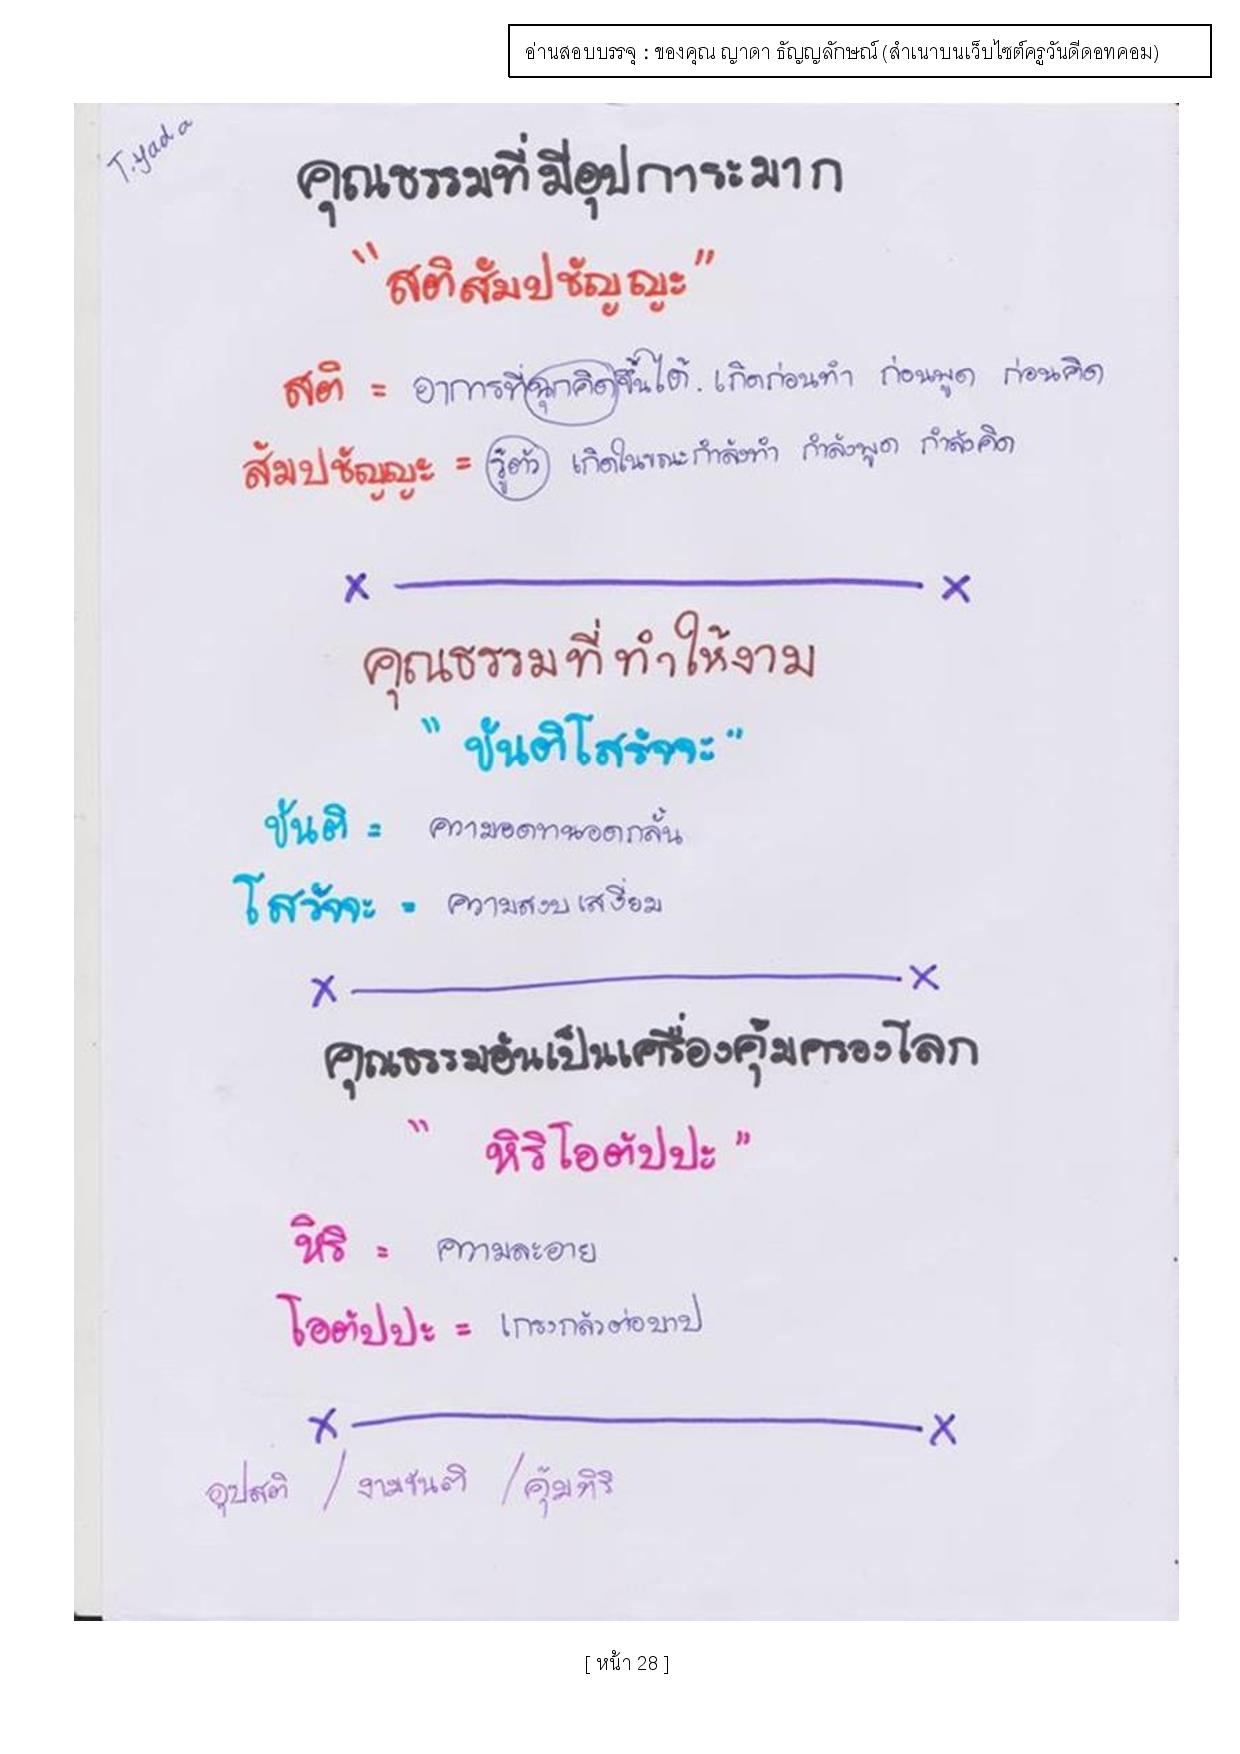 อ่านสอบบรรจุ : ของคุณ ญาดา ธัญญลักษณ์ (สำเนาบนเว็บไซต์ครูวันดีดอทคอม)
T.yada
คุณธรรมที่มีอุปการะมาก
"สติสัมปชัญญะ"
สติ = อาการที่ฉุกคิดขึ้นได้. เกิดก่อนทำ ก่อนพูด ก่อนคิด
สัมปชัญญะ = รู้ตัว เกิดในขณะกำลังทำ กำลังพูด กำลังคิด
x x
คุณธรรมที่ทำให้งาม
"ขันติโสรัจจะ"
ขันติ = ความอดทนอดกลั้น
โสรัจจะ = ความสงบเสงี่ยม
x x
คุณธรรมอันเป็นเครื่องคุ้มครองโลก
"หิริโอตัปปะ"
หิริ = ความละอาย
โอตัปปะ = เกรงกลัวต่อบาป
x x
อุปสติ / งามขันติ / คุ้มหิริ
[ หน้า 28 ]